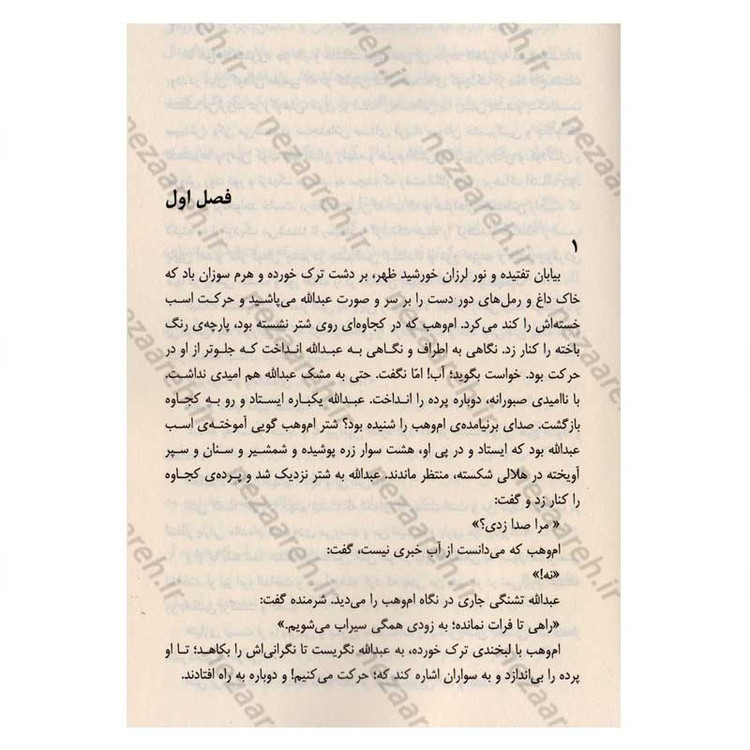 فصل اول
۱
بیابان تفتیده و نور لرزان خورشید ظهر، بر دشت ترک خورده و هرم سوزان باد که
خاک داغ و رمل‌های دور دست را بر سر و صورت عبدالله می‌پاشید و حرکت اسب
خسته‌اش را کند می‌کرد. ام‌وهب که در کجاوه‌ای روی شتر نشسته بود، پارچه‌ی رنگ
باخته را کنار زد. نگاهی به اطراف و نگاهی به عبدالله انداخت که جلوتر از او در
حرکت بود. خواست بگوید؛ آب! امّا نگفت. حتی به مشک عبدالله هم امیدی نداشت.
با ناامیدی صبورانه، دوباره پرده را انداخت. عبدالله یکباره ایستاد و رو به کجاوه
بازگشت. صدای برنیامده‌ی ام‌وهب را شنیده بود؟ شتر ام‌وهب گویی آموخته‌ی اسب
عبدالله بود که ایستاد و در پی او، هشت سوار زره پوشیده و شمشیر و سنان و سپر
آویخته در هلالی شکسته، منتظر ماندند. عبدالله به شتر نزدیک شد و پرده‌ی کجاوه
را کنار زد و گفت:
« مرا صدا زدی؟»
ام‌وهب که می‌دانست از آب خبری نیست، گفت:
«نه!»
عبدالله تشنگی جاری در نگاه ام‌وهب را می‌دید. شرمنده گفت:
«راهی تا فرات نمانده؛ به زودی همگی سیراب می‌شویم.»
ام‌وهب با لبخندی ترک خورده، به عبدالله نگریست تا نگرانی‌اش را بکاهد؛ تا او
پرده را بی‌اندازد و به سواران اشاره کند که؛ حرکت می‌کنیم! و دوباره به راه افتادند.
nezaareh.ir
nezaareh.ir
nezaareh.ir
nezaareh.ir
nezaareh.ir
nezaareh.ir
nezaareh.ir
nezaareh.ir
nezaareh.ir